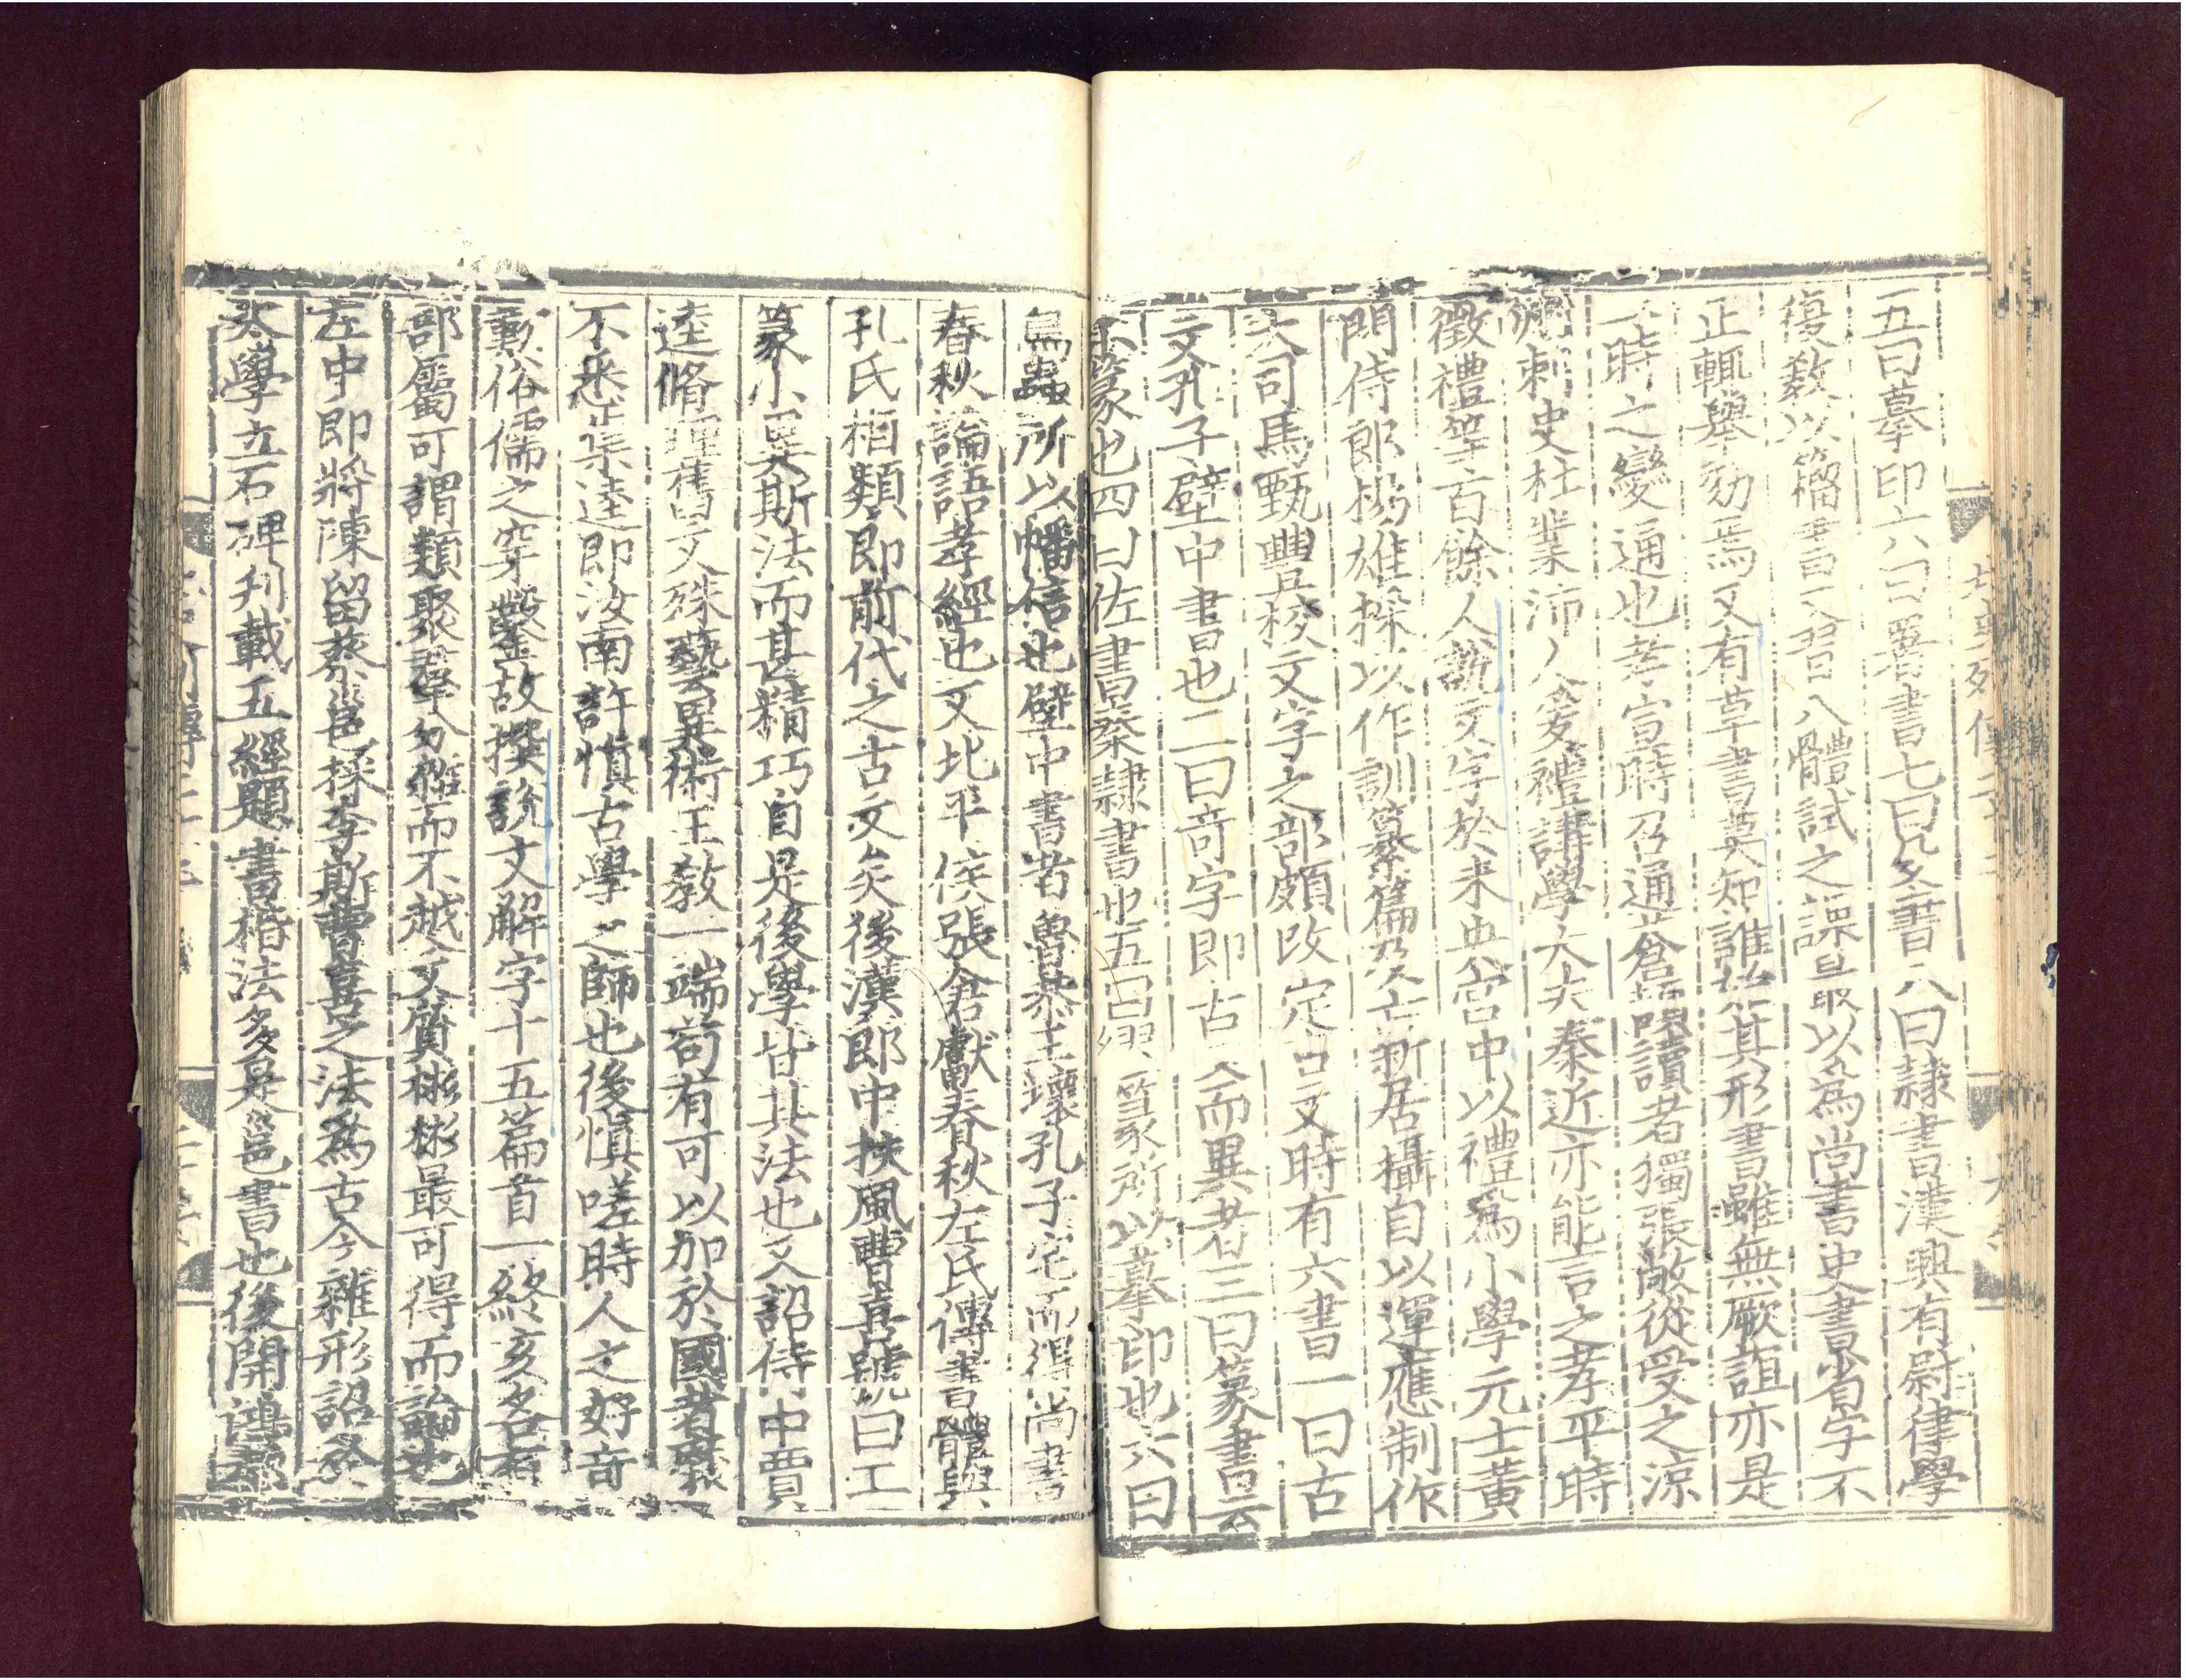 五曰摹印六曰署書七曰殳書八曰隸書漢興有尉律學
復敎以籀書又習八體試之課最以爲尚書史書省字不
正輒舉劾焉又有草書莫知誰始其形書雖無厥誼亦是
一時之變通也孝宣時召通倉頡讀者獨張敞從受之涼
州刺史杜業沛人爰禮講學大夫秦近亦能言之孝平時
徵禮等百餘人說文字於未央宮中以禮爲小學元士黃
門侍郎揚雄採以作訓纂篇及亡新居攝自以運應制作
大司馬甄豐校文字之部頗改定古文時有六書一曰古
文孔子壁中書也二曰奇字即古文而異者三曰篆書云
小篆也四曰佐書秦隸書也五曰繆篆所以摹印也六曰
鳥蟲所以幡信也壁中書者魯恭王壞孔子宅而得尚書
春秋論語孝經也又北平侯張倉獻春秋左氏傳書體與
孔氏相類即前代之古文矣後漢郎中扶風曹喜號曰工
篆小異斯法而甚精巧自是後學皆其法也又詔侍中賈
逵脩理舊文殊藝異術王敎一端苟有可以加於國者靡
不悉集逵即汝南許慎古學之師也後慎嗟時人之好奇
歎俗儒之穿鑿故撰說文解字十五篇首一終亥各有
部屬可謂類聚羣分雜而不越文質彬彬最可得而論也
左中郎將陳留蔡邕採李斯曹喜之法爲古今雜形詔於
太學立石碑刋載五經題書楷法多是邕書也後開鴻都